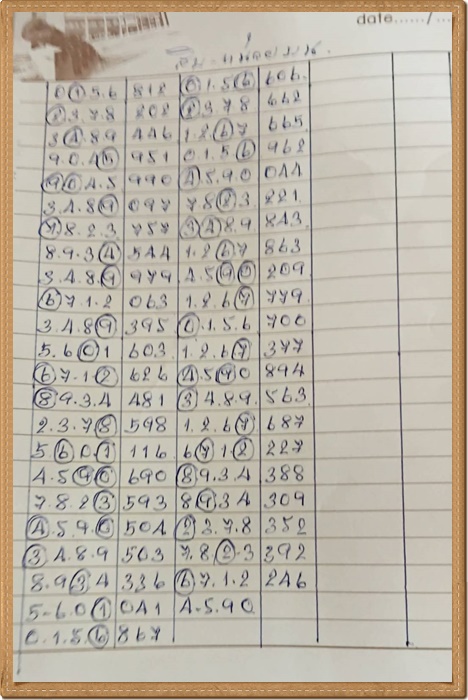 date....../...
0 1 5.6 812 0 1.5 6 606.
2 3.7.8 202 2 3.7 8 662
3 4.8 9 446 1.2.6 7 665
9.0.4 5 951 0.1.5 6 962
9 0 4.5 990 4 5.9 0 044
3.4.8 9 097 7 8 2 3 221
7 8.2.3 757 3 4 8.9 843
8.9.3 4 544 1.2 6 7 863
3.4.8.9 979 4.5 9 0 209
6 7 1.2 063 1.2.6 7 779
3.4.8 9 395 0.1.5.6 700
5.6 0 1 603 1.2.6 7 377
6 7.1.2 626 4.5 9 0 894
8 9.3.4 481 3 4.8 9. 563
2.3.7 8 598 1.2.6 7 687
5 6 0.1 116 6 7 1.2 227
4.5 9 0 690 8 9.3.4 388
7.8.2 3 593 8 9 3 4 309
4.5.9.0 504 2 3.7.8 352
3 4.8.9 503 7.8.2.3 392
8.9 3 4 336 6 7.1.2 246
5-6.0 1 041 4.5.90
0.1.5 6 867